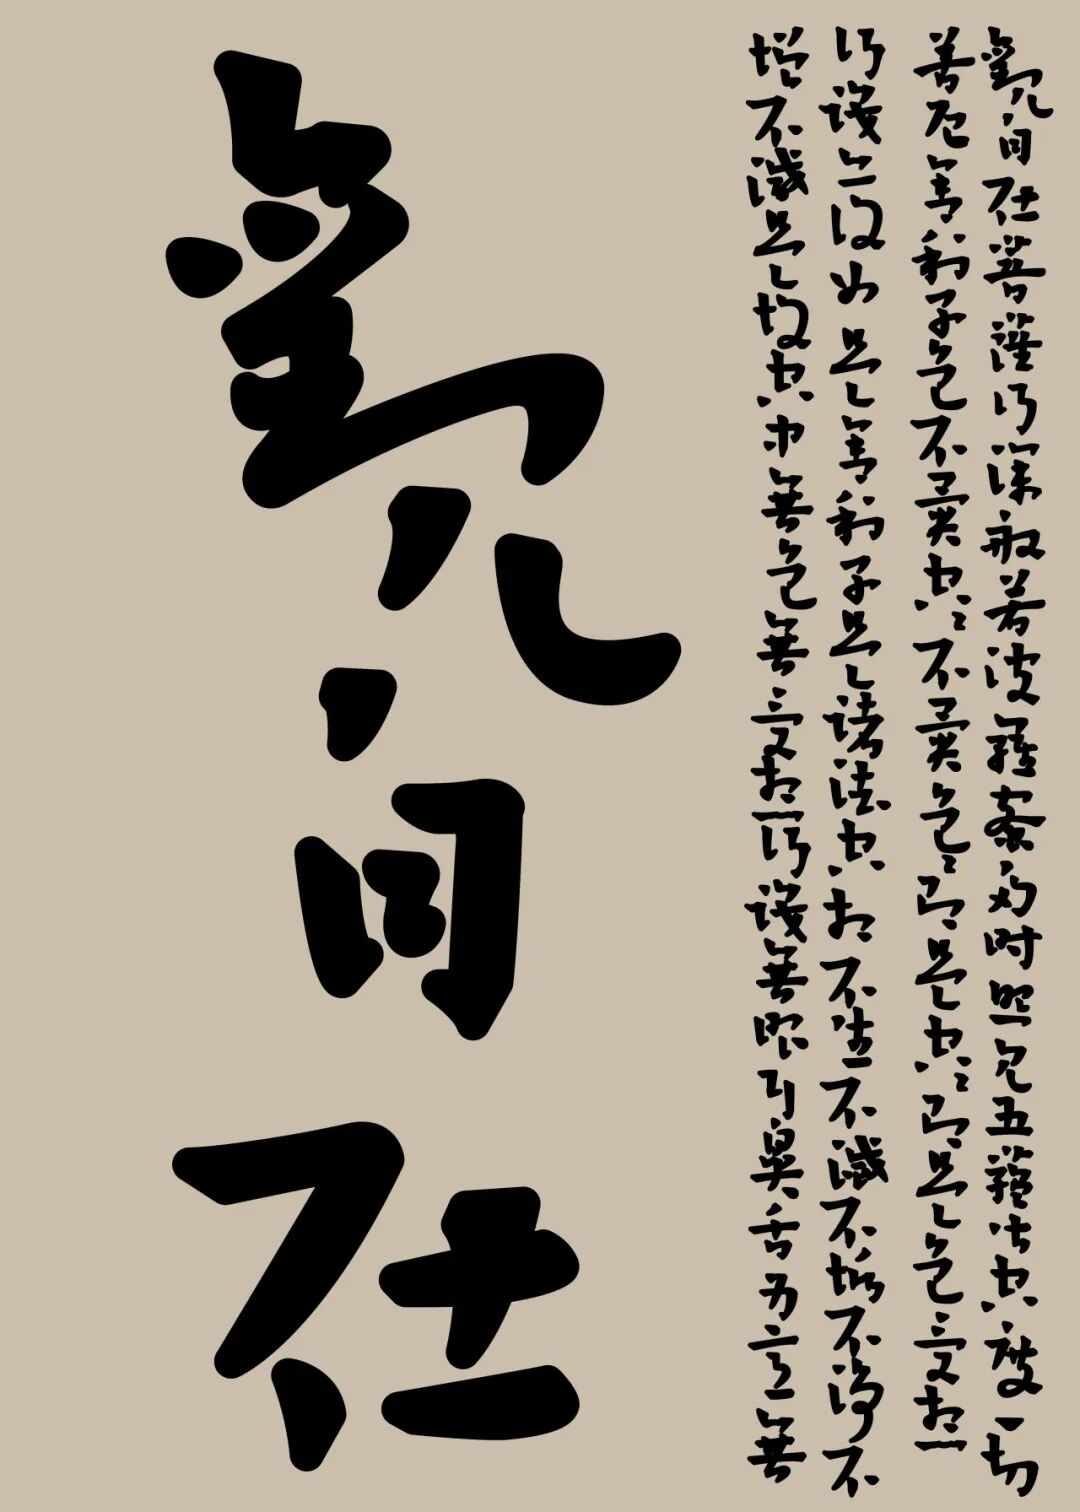 觀自在菩薩行深般若波羅蜜多時照見五蘊皆空度一切
苦厄舍利子色不異空々不異色々即是空々即是色受想
行識亦復如是舍利子是諸法空相不生不滅不垢不淨不
增不減是故空中無色無受想行識無眼耳鼻舌身意無
觀自在